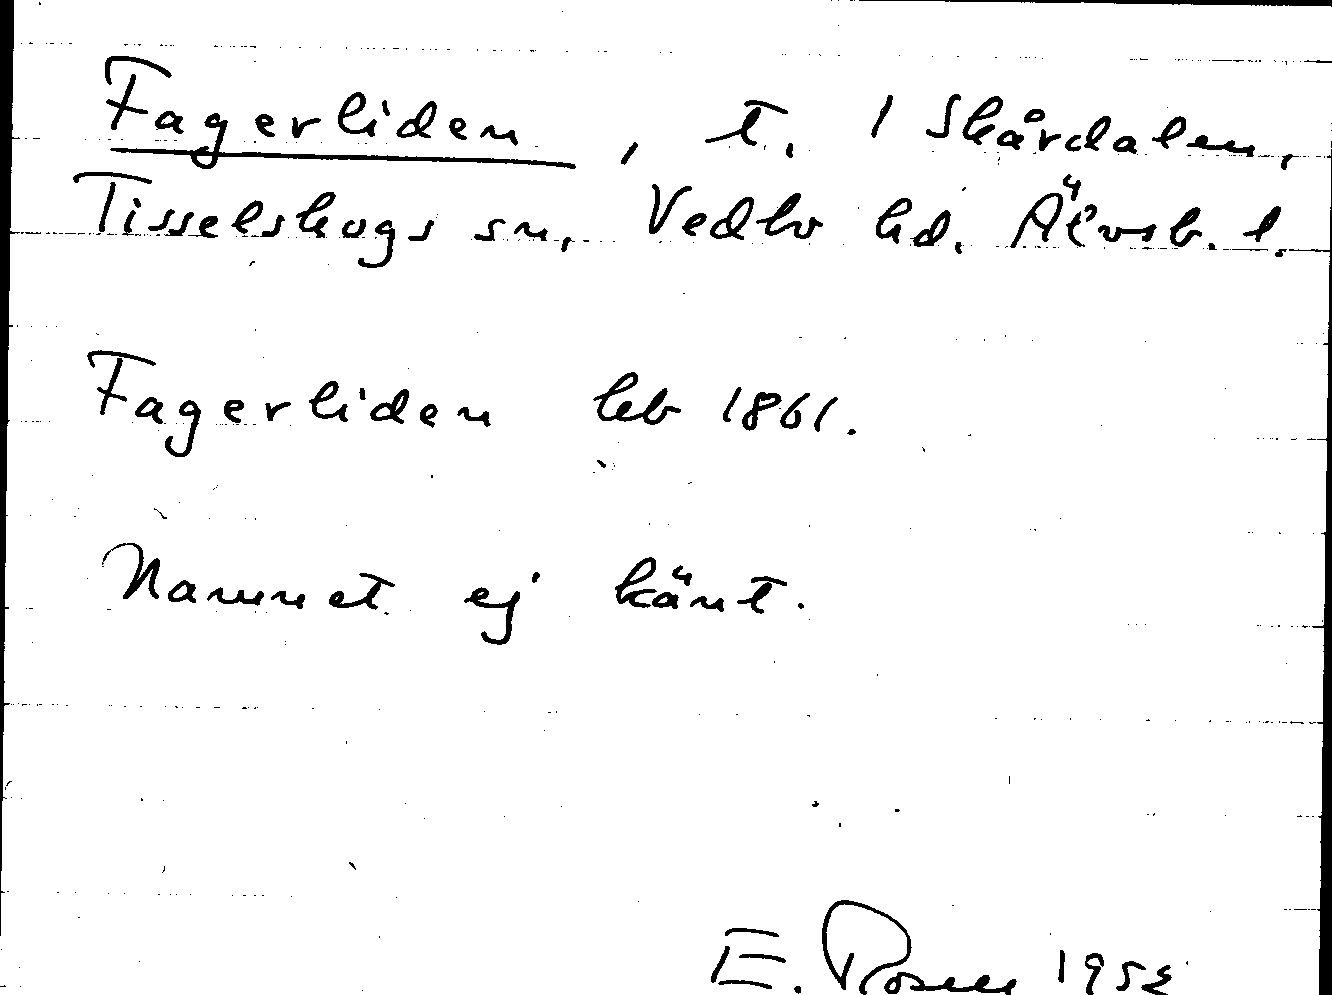 Fagerliden, t. / Skårdalen,
Tisselskogs sn, Vedbo hd. Älvsb. l.
Fagerliden hb 1861.
Namnet ej känt.
E. Rosell 1952